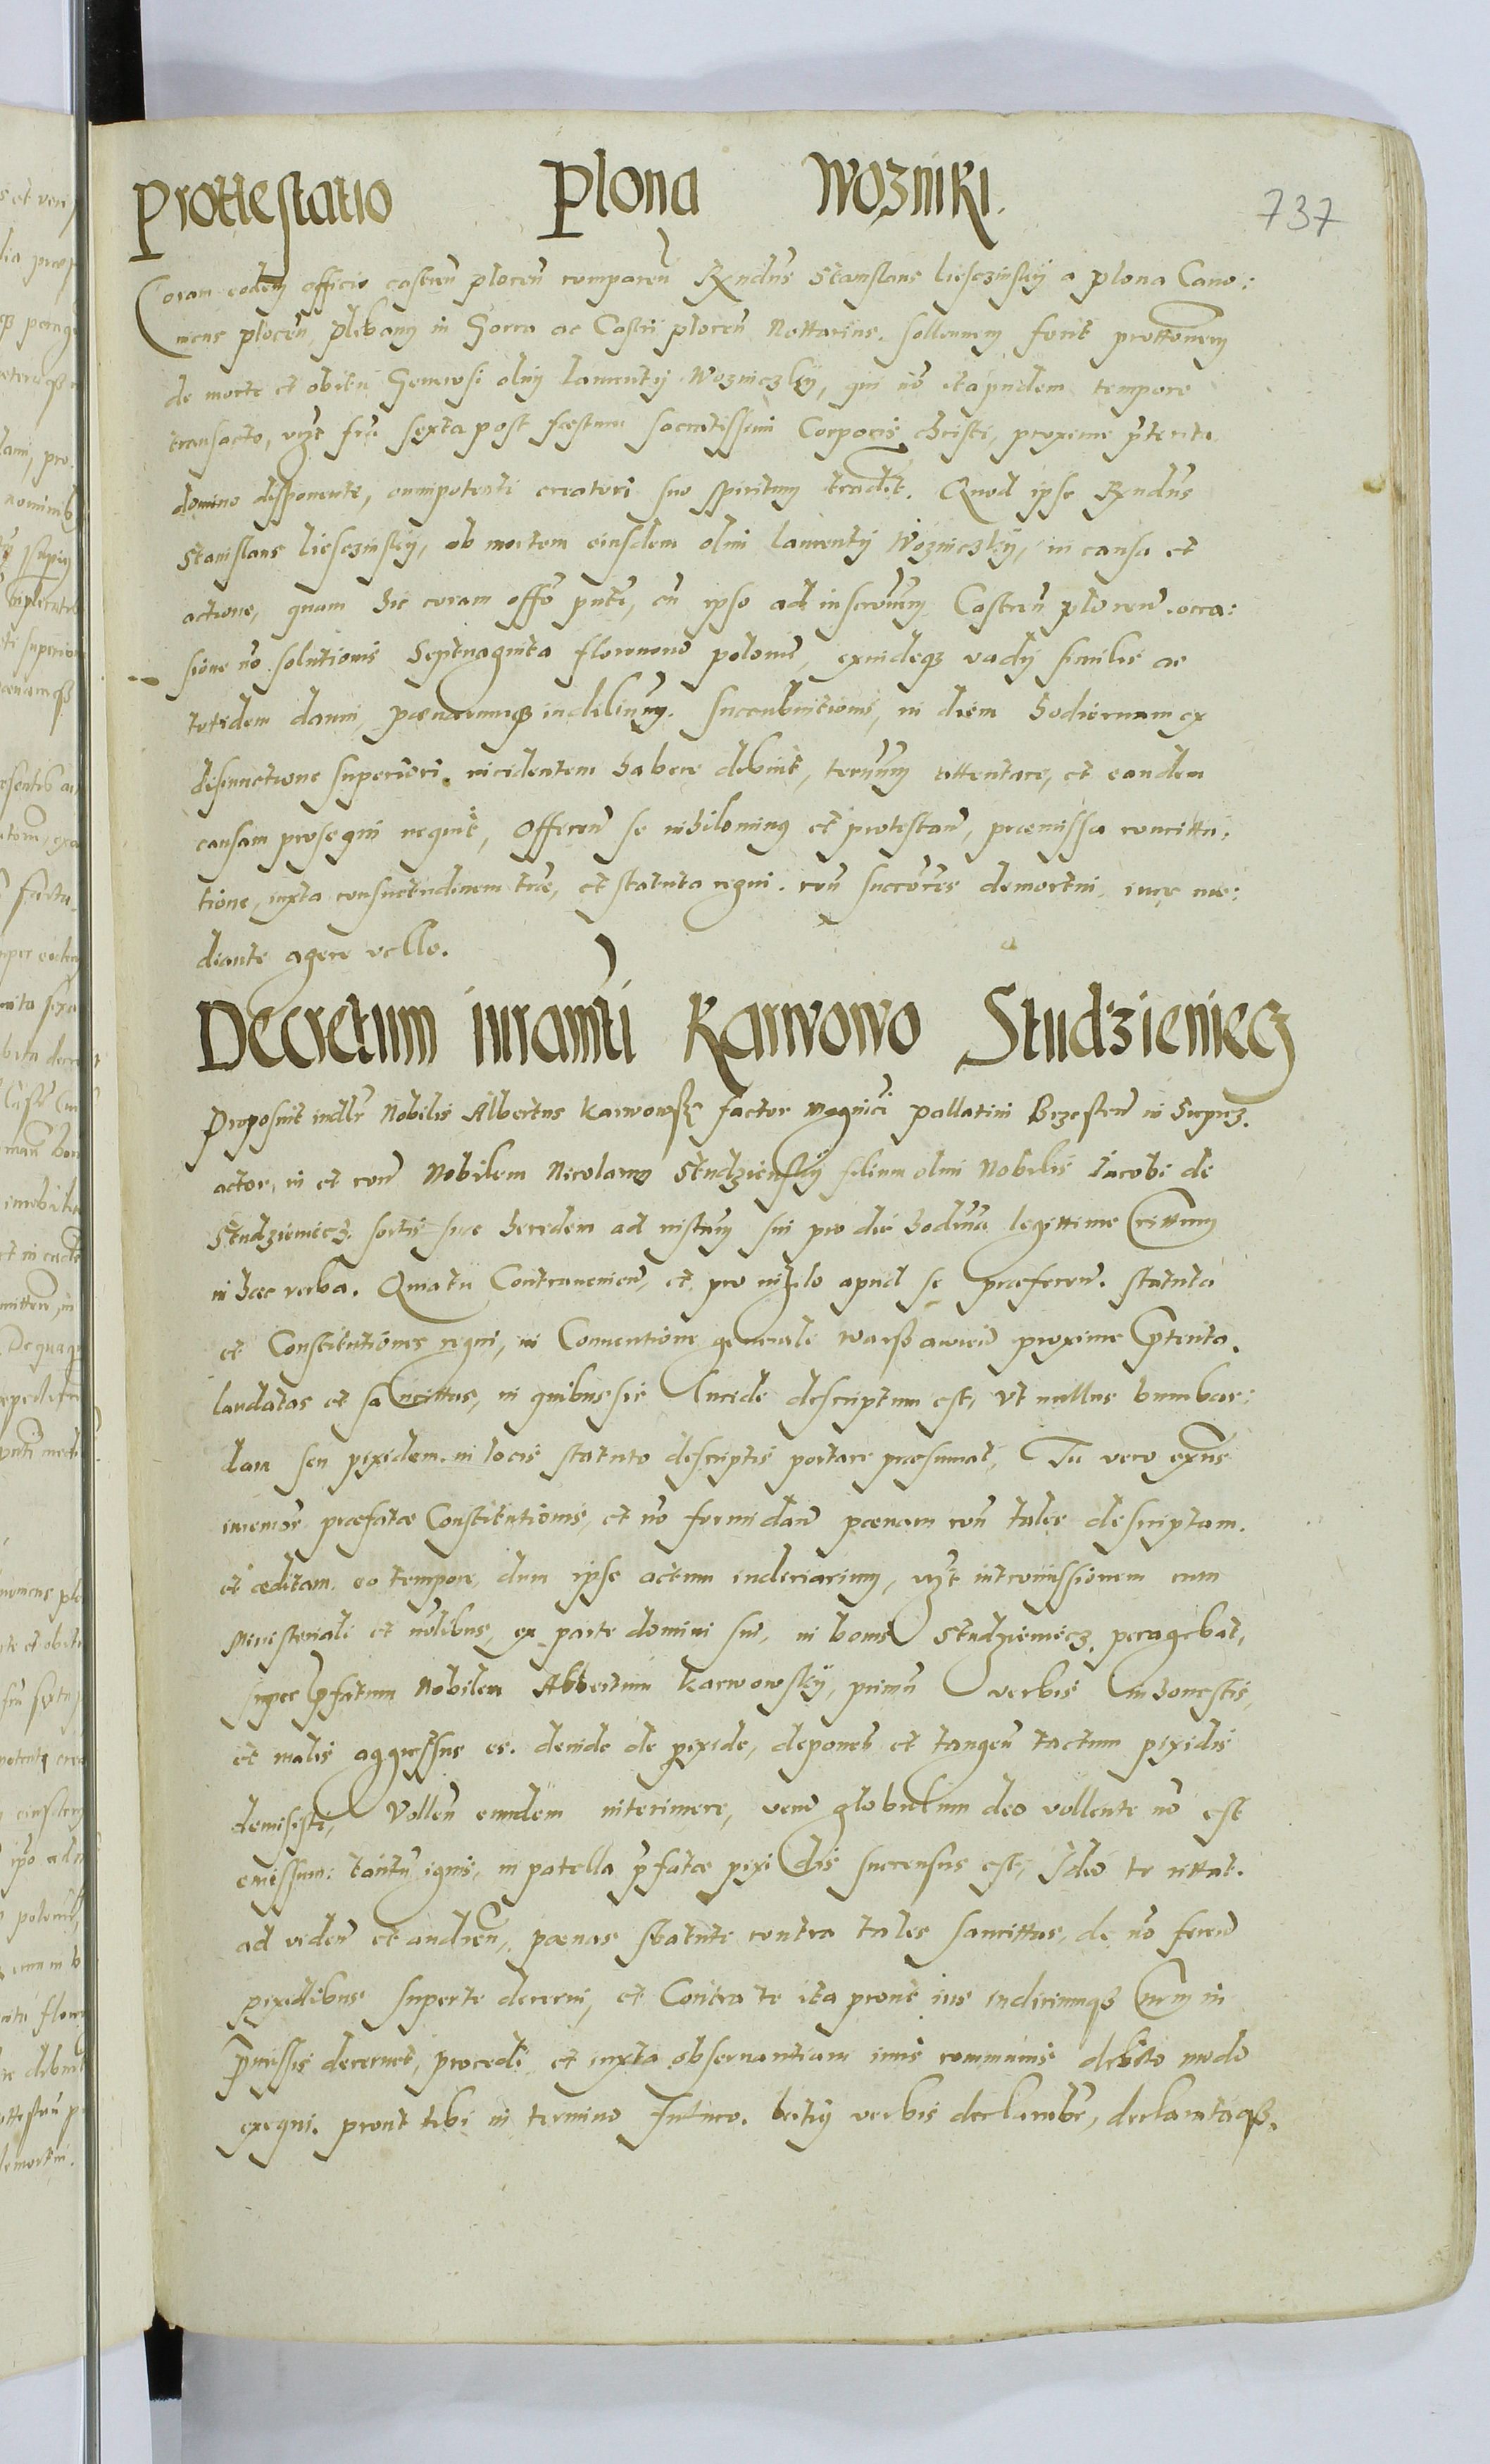 Prottestatio Plona Wozniki.
737
Coram eodem officio castren̄ plocen̄ comparen̄ Rx̄ndus Stanislaus Liesczinskÿ a Plona Cano:
nicus plocen̄, plebanus in Gorra ac Castri plocen̄ Nottarius. sollennem fecit prottōnem
de morte et obitu Generosi olim Laurentij Wozniczkÿ, qui nō ita pridem tempore
transacto, vz̄t fr̄ia sexta post fæstum sacratissimi Corporis christi, proxime p̄terita
domino disponente, omnipotenti creatori suo spiritum tradidit. Quod ipse Rx̄ndus
Stanislaus Liesczinskÿ, ob mortem eiusdem olim Laurentij Wozniczkÿ, in causa et
actione, quam hic coram off̄o pn̄ti, cū ipso ad inscr̄onem Castren̄ plocen̄. occa:
sione nō solutionis Septuaginta florenorū polonic̄, exindeqz vadij similis ac
totidem damni, pænarumqz succubuitionis, in diem hodiernam ex
disiunctione superiori incidentem habere debuit, ter̄num attentare, et eandem
causam prosequi nequit, Offeren̄ se nihilominus et protestan̄, præmissa concitta:
tione, iuxta consuetudinem tr̄æ, et statuta regni. con̄ succōres demortui iure me:
diante agere velle.
Decretum iuramn̄ti Karwowo Studzieniecz
Proposuit iudlr̄ Nobilis Albertus Karwowsky factor magnici pallatini Brzesten̄ in Sieprcz.
actor, in et con̄ Nobilem Nicolaum Studzienskÿ filium olim Nobilis Jacobi de
Studzieniecz sortis suæ heredem ad inst̄iam sui pro die hod̄ierna legittime cittum
in hæc verba. Quia tu Contraueniens, et pro nihilo apud se præferen̄. statuta
et Constitutiones regni, in Conuentione generale warschawien̄ proxime p̄terita.
laudatas et sancittas, in quibus sic lucide descriptum est, vt nullus bumbar:
dam seu pixidem. in locis statuto descriptis portare præsumat, Tu vero ex̄ns
immemor præfatæ Constitutionis, et nō formidan̄ pænam con̄ tales descriptam.
et æditam. eo tempore, dum ipse actum iudiciarium, vz̄t intromissionem cum
Ministeriali et nōbilibus, ex parte domini sui, in bonis Studzieniecz peragebat,
super p̄fatum Nobilem Albertum Karwowskÿ, primū verbis inhonestis,
et malis aggressus es. deinde de pixide, deponens et tangen̄ tactum pixidis
demisisti, Vollen̄ eundem interimere, verū globulum deo vollente nō est
emissum: tantū ignis, in patella p̄fatæ pixidis succensus est, Ideo te cittat.
ad viden̄ et audien̄, pænas statute contra tales sancittas, de nō feren̄
pixidibus super te decerni, et Contra te ita prout ius iudiciumqz nr̄m in
p̄missis decernet, procedi et iuxta obseruantiam iuris communis debito modo
exequi. prout tibi in termino Futuro. latius verbis declarabr̄, declarataqz.